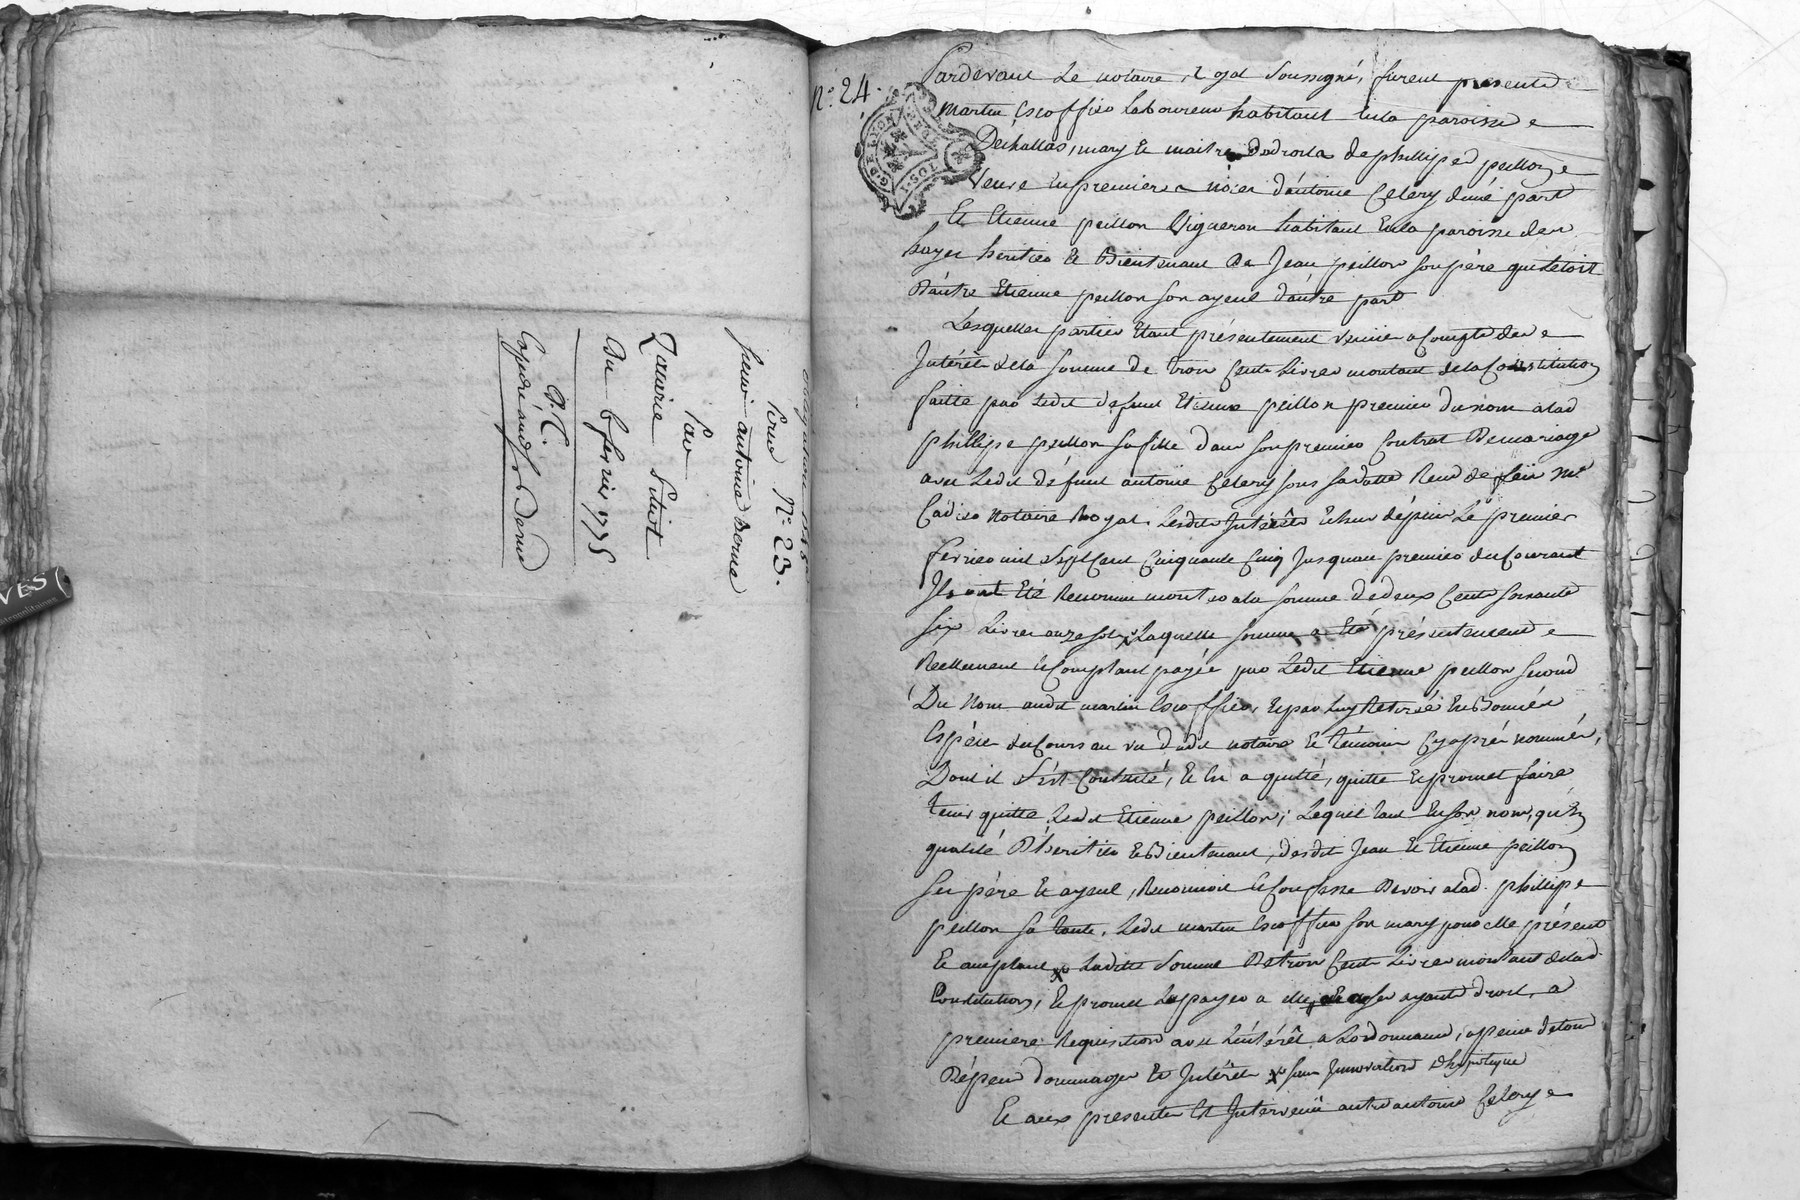 obligation
Pour N° 23.
Sieur antoine Berne
Par
Zaccarie Pitiot
Du 6 fevrier 1775
D. C.
N° 24.
Pardevant Le notaire Royal Soussigné, furent présents
Martin Escoffier Laboureur habitant en la paroisse
Dechallas, mary Et maitre Des droits de phillipe peillon
Veuve en premieres noces d'antoine Celery d'une part
Et Etienne peillon Vigneron habitant En la paroisse des
hayes heritier Et Bientenant de Jean peillon son père qui l'étoit
D'autre Etienne peillon son ayeul d'autre part
Lesquelles parties Etant présentement venües a Compte des
Intérêts de la somme de trois Cents Livres montant de la Constitution
faitte par Ledit défunt Etienne peillon premier du nom alad
phillipe peillon sa fille dans son premier Contrat De mariage
avec Ledit défunt antoine Celery sous sa datte Reçu de feu Me
Cadier Notaire Royal. Lesdits Intérêts Echus depuis Le premier
fevrier mil Sept Cent Cinquante Cinq Jusquau premier du Courant
Ils ont Eté Reconnu monter ala somme de deux Cents soixante
six Livres onze sols Laquelle somme a Eté présentement
Reellement Et Comptant payée par Ledit Etienne peillon second
Du Nom audit martin Escoffier, Et par Luy Retirée En Bonnes
Espèces du Cours au vu dudit notaire Et témoins Cyaprés nommés,
Dont il s'est Contenté, Et En a quitté, quitte Et promet faire
tenir quitte Ledit Etienne peillon; Lequel tant En son nom, qu'En
qualité D'heritier Et Bientenant, desdits Jean Et Etienne peillon
ses père Et ayeul, Reconnoit Et Confesse Devoir alad. phillipe
peillon sa tante, Ledit martin Escoffier son mary pour elle présent
Et acceptant Laditte Somme De trois Cents Livres montant de lad
Constitution, Et promet La payer a elle, ou a ses ayants droit, a
premiere Requisition avec L'intérêt a L'ordonnance, a peine de tous
Dépens dommages Et Intérêts sans Innovation d'hypoteque
Et aux presentes Est Intervenü autre antoine Celery